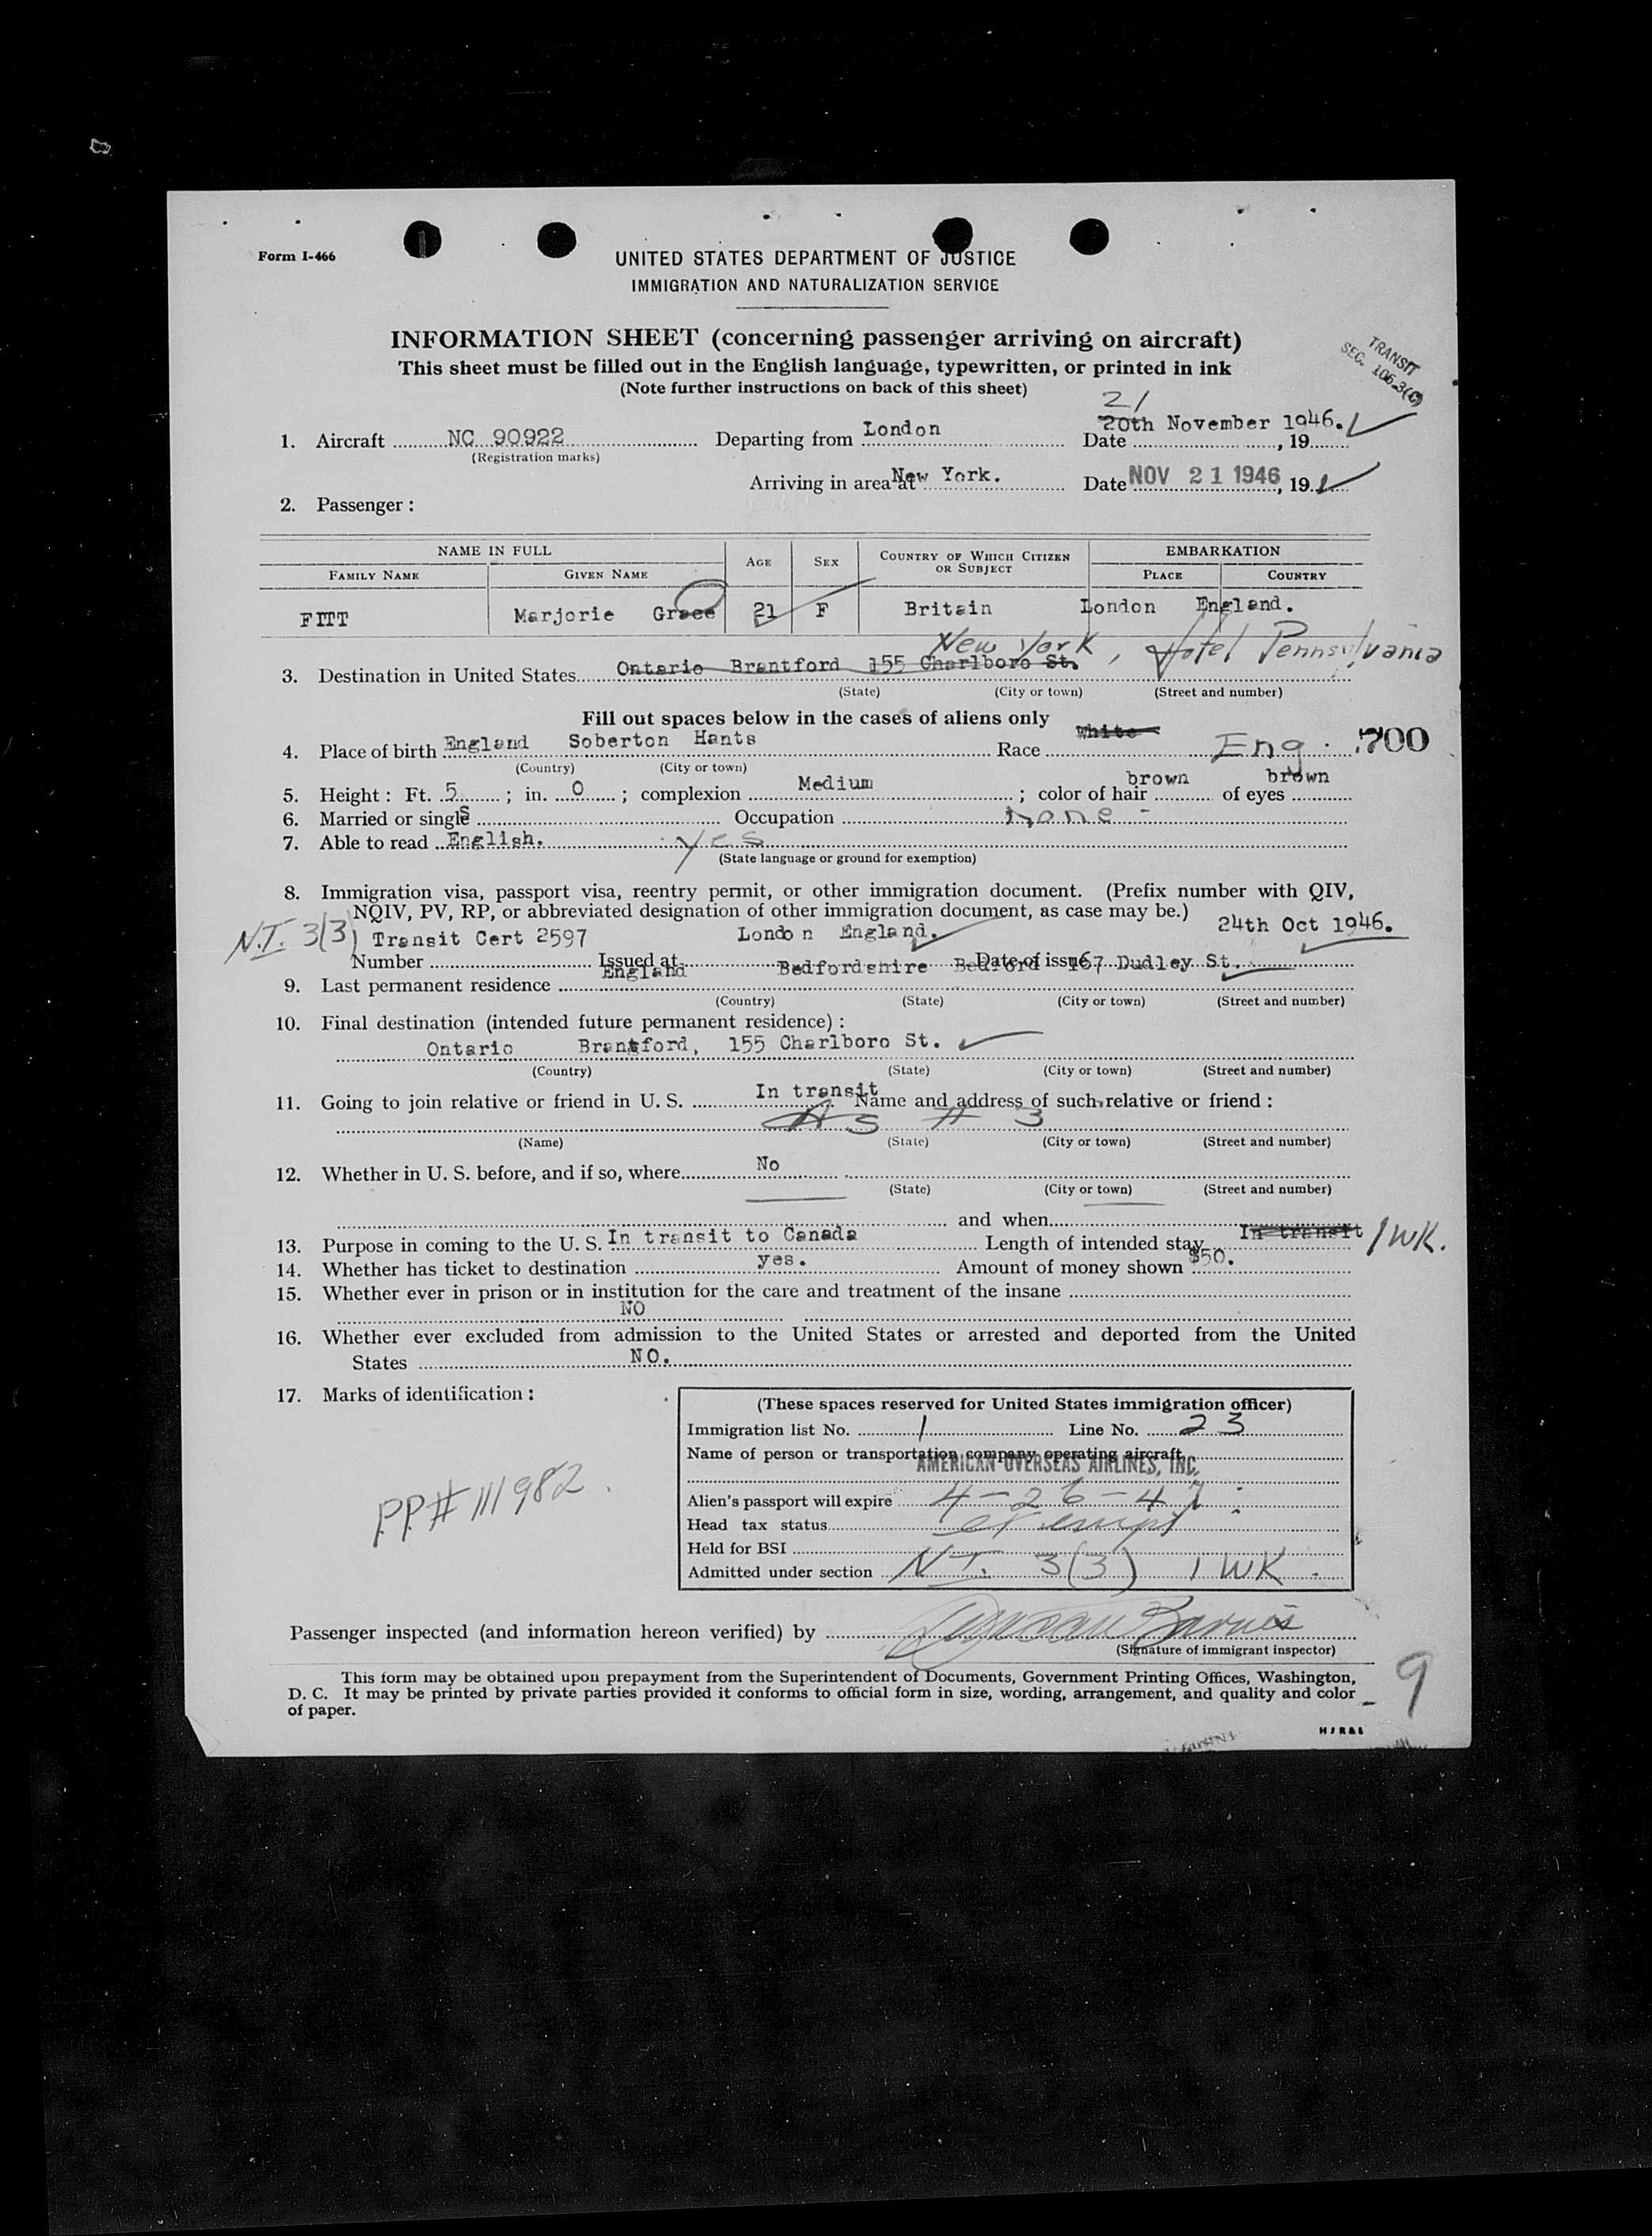 Form I-466
UNITED STATES DEPARTMENT OF JUSTICE
IMMIGRATION AND NATURALIZATION SERVICE
INFORMATION SHEET (concerning passenger arriving on aircraft)
This sheet must be filled out in the English language, typewritten, or printed in ink
(Note further instructions on back of this sheet)
TRANSIT
SEC. 105.3(C)
21
1. Aircraft NC 90922 Departing from London Date 20th November 1946. , 19
(Registration marks)
Arriving in area at New York. Date NOV 21 1946, 19
2. Passenger :
NAME IN FULL AGE SEX COUNTRY OF WHICH CITIZEN OR SUBJECT EMBARKATION
FAMILY NAME GIVEN NAME PLACE COUNTRY
FITT Marjorie Grace 21 F Britain London England.
New York, Hotel Pennsylvania
3. Destination in United States Ontario Brantford 155 Charlboro St.
(State) (City or town) (Street and number)
Fill out spaces below in the cases of aliens only
4. Place of birth England Soberton Hants Race White Eng. 700
(Country) (City or town)
5. Height : Ft. 5 ; in. 0 ; complexion Medium ; color of hair brown of eyes brown
6. Married or single S Occupation None -
7. Able to read English. yes
(State language or ground for exemption)
8. Immigration visa, passport visa, reentry permit, or other immigration document. (Prefix number with QIV,
NQIV, PV, RP, or abbreviated designation of other immigration document, as case may be.)
N.I. 3(3) Transit Cert 2597 London England. 24th Oct 1946.
Number Issued at Date of issue
9. Last permanent residence England Bedfordshire Bedford 167 Dudley St.
(Country) (State) (City or town) (Street and number)
10. Final destination (intended future permanent residence) :
Ontario Brantford, 155 Charlboro St.
(Country) (State) (City or town) (Street and number)
11. Going to join relative or friend in U. S. In transit Name and address of such relative or friend :
As # 3
(Name) (State) (City or town) (Street and number)
12. Whether in U. S. before, and if so, where No
(State) (City or town) (Street and number)
and when
13. Purpose in coming to the U. S. In transit to Canada Length of intended stay In transit 1 WK.
14. Whether has ticket to destination yes. Amount of money shown $50.
15. Whether ever in prison or in institution for the care and treatment of the insane
NO
16. Whether ever excluded from admission to the United States or arrested and deported from the United
States NO.
17. Marks of identification :
PP# 111982.
(These spaces reserved for United States immigration officer)
Immigration list No. 1 Line No. 23
Name of person or transportation company operating aircraft
AMERICAN OVERSEAS AIRLINES, INC.
Alien's passport will expire 4-26-47
Head tax status exempt
Held for BSI
Admitted under section N.I. 3(3) 1 WK.
Passenger inspected (and information hereon verified) by
(Signature of immigrant inspector)
This form may be obtained upon prepayment from the Superintendent of Documents, Government Printing Offices, Washington,
D. C. It may be printed by private parties provided it conforms to official form in size, wording, arrangement, and quality and color
of paper.
9